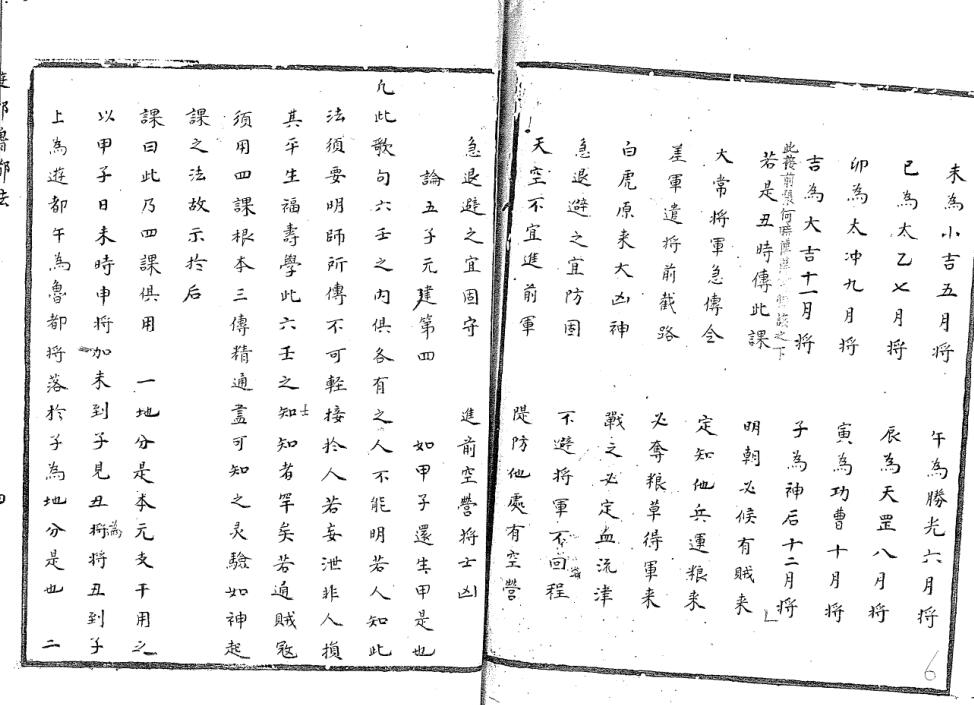 未為小吉五月將　午為勝光六月將
巳為太乙七月將　辰為天罡八月將
卯為太冲九月將　寅為功曹十月將
吉為大吉十一月將　子為神后十二月將
此
若是丑時傳此課　明朝必候有賊來
大常將軍急傳令　定知他兵運粮來
差軍遣將前截路　必奪粮草得軍來
白虎原來大凶神　戰之必定血流津
急退避之宜防固　不避將軍不回程
天空不宜進前軍　隄防他處有空營
急退避之宜固守　進前空營將士凶
論五子元建第四　如甲子還生甲是也
凡此歌句六壬之內俱各有之人不能明若人知此
法須要明師所傳不可輕接於人若妄泄非人損
其平生福壽學此六壬之士知知者罕矣若遇賊冦
須用四課根本三傳精通盡可知之灵驗如神起
課之法故示於后
課曰此乃四課俱用　一地分是本元支干用之
以甲子日未時申將加未到子見丑將為將丑到子
上為遊都午為魯都將落於子為地分是也　二
遊都魯都法
四
6